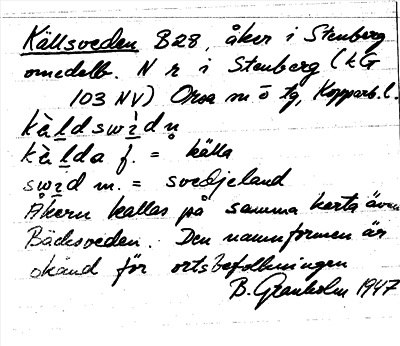 Källsveden B28, åker i Stenberg
omedelb. N r i Stenberg (kG
103 NV) Orsa sn o tg, Kopparb. l.
kèḷdswìdn̥
kèḷda f. = källa
swìd m. = svedjeland
Åkern kallas på samma karta även
Bäcksveden. Den namnformen är
okänd för ortsbefolkningen
B. Granholm 1947